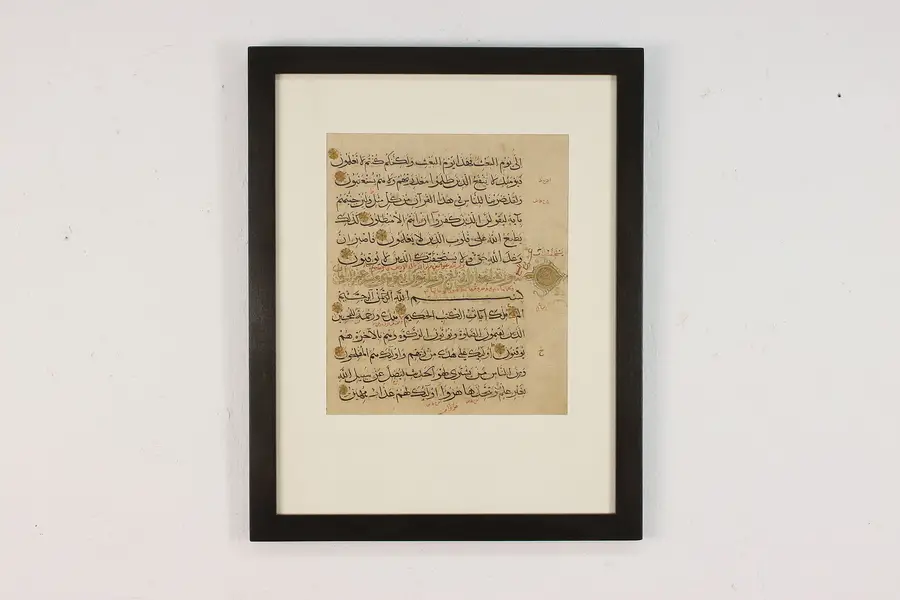 الى يوم البعث فهذا يوم البعث ولكنكم كنتم لا تعلمون
فيومئذ لا ينفع الذين ظلموا معذرتهم ولا هم يستعتبون
ولقد ضربنا للناس في هذا القرآن من كل مثل ولئن جئتهم
بآية ليقولن الذين كفروا ان انتم الا مبطلون كذلك
يطبع الله على قلوب الذين لا يعلمون فاصبر ان
وعد الله حق ولا يستخفنك الذين لا يوقنون
بسم الله الرحمن الرحيم
الم تلك آيات الكتب الحكيم هدى ورحمة للمحسنين
الذين يقيمون الصلوة ويوتون الزكوة وهم بالآخرة هم
يوقنون اولئك على هدى من ربهم واولئك هم المفلحون
ومن الناس من يشتري لهو الحديث ليضل عن سبيل الله
بغير علم ويتخذها هزوا اولئك لهم عذاب مهين